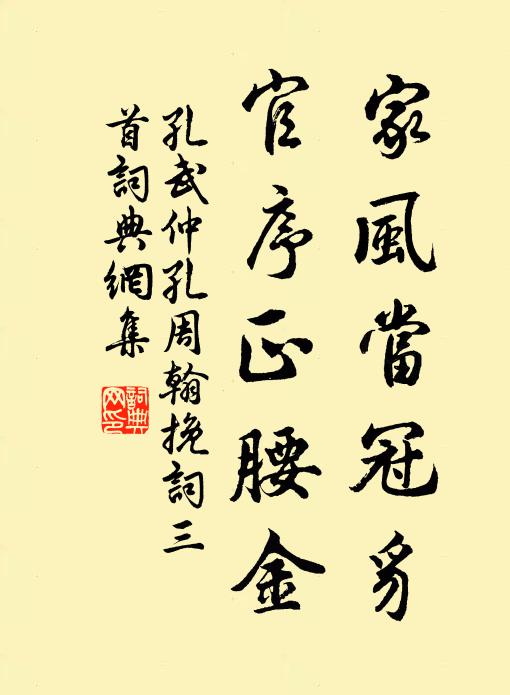 家風當冠豸
官序正腰金
孔武仲孔周翰挽詞三
首詞典網集
詞典
网印